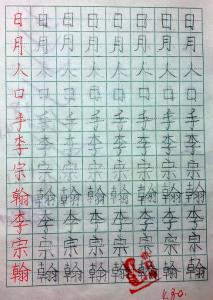 日日日日日日日日
月月月月月月月月
人人人人人人人人
口口口口口口口口
手手手手手手手手
李李李李李李李李
宗宗宗宗宗宗宗宗
翰翰翰翰翰翰翰翰
李李李李李李李李
宗宗宗宗宗宗宗宗
翰翰翰翰翰翰翰翰